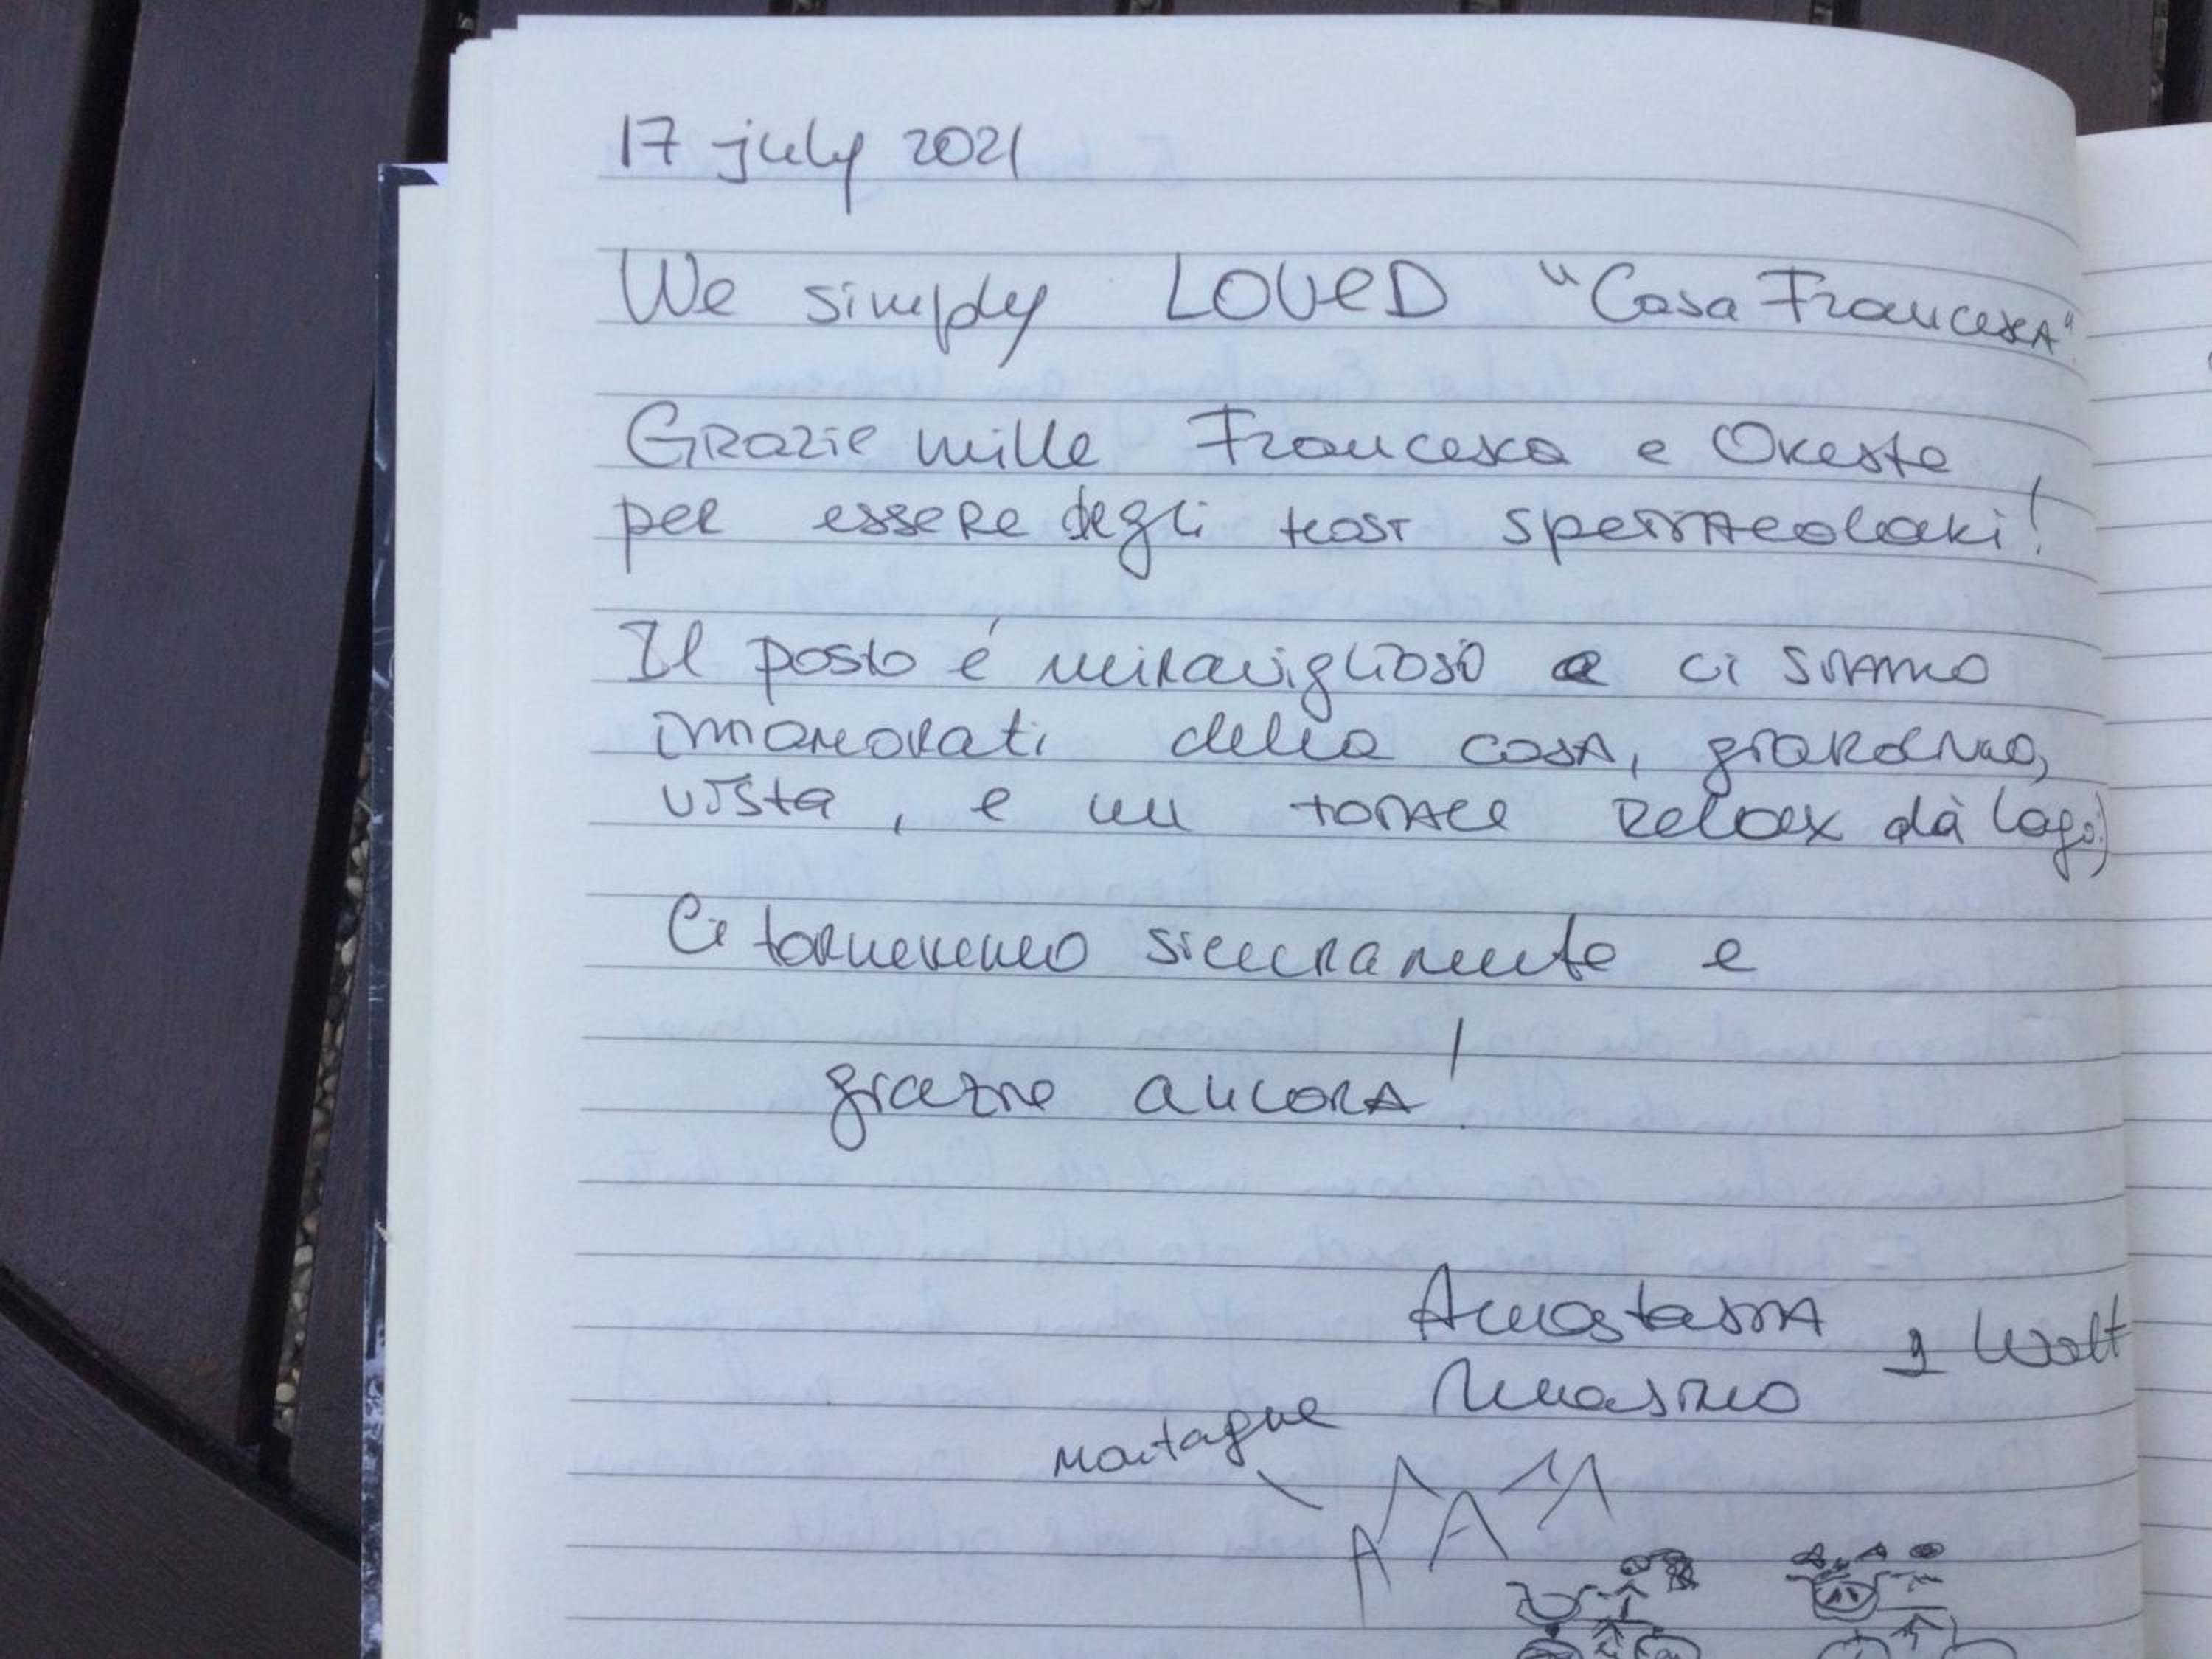 17 july 2021
We simply LOVED "Casa Francesca"
Grazie mille Francesca e Oreste
per essere degli host spettacolari!
Il posto é meraviglioso e ci siamo
innamorati della casa, giardino,
vista, e un totale relax dà lago:)
Ci torneremo sicuramente e
grazie ancora!
Anastasia
& Walt
Montagne